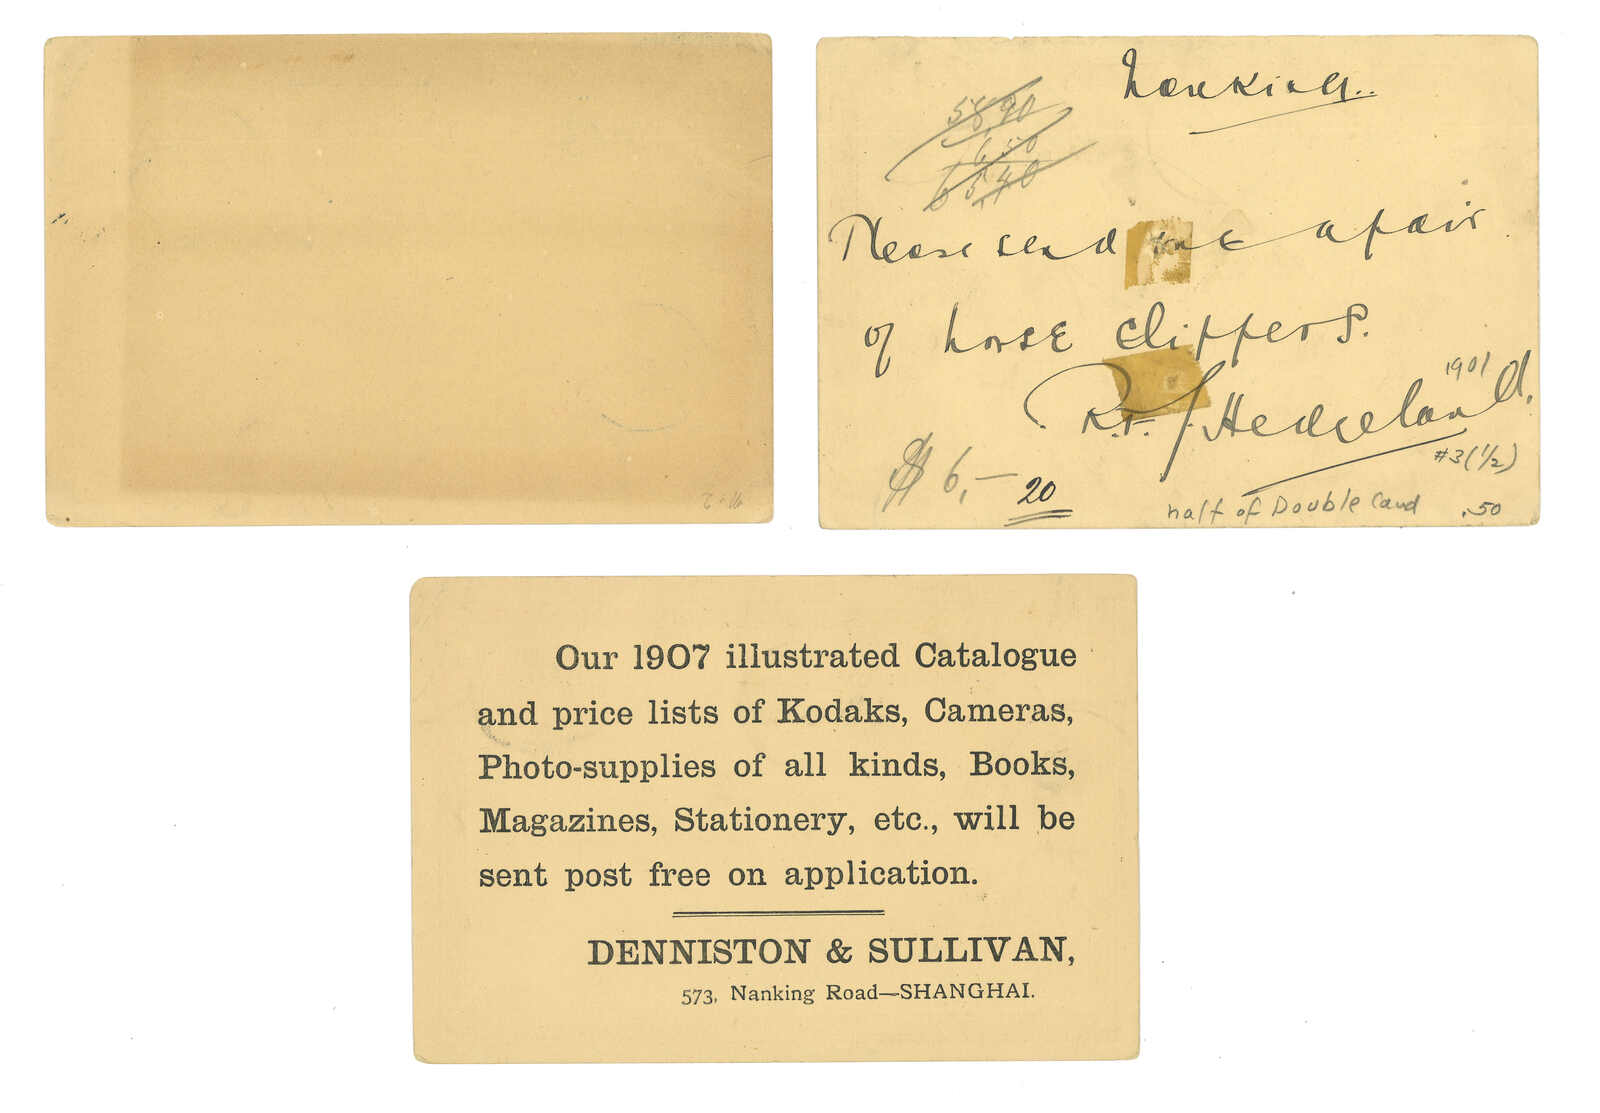 11-2
Nanking.
58,90
6,50
65,40
Please send me a pair
of horse clippers.
1901
R.F. J. Hedgeland.
#3(1/2)
$6,— 20
half of Double Card .50
Our 1907 illustrated Catalogue
and price lists of Kodaks, Cameras,
Photo-supplies of all kinds, Books,
Magazines, Stationery, etc., will be
sent post free on application.
DENNISTON & SULLIVAN,
573, Nanking Road—SHANGHAI.